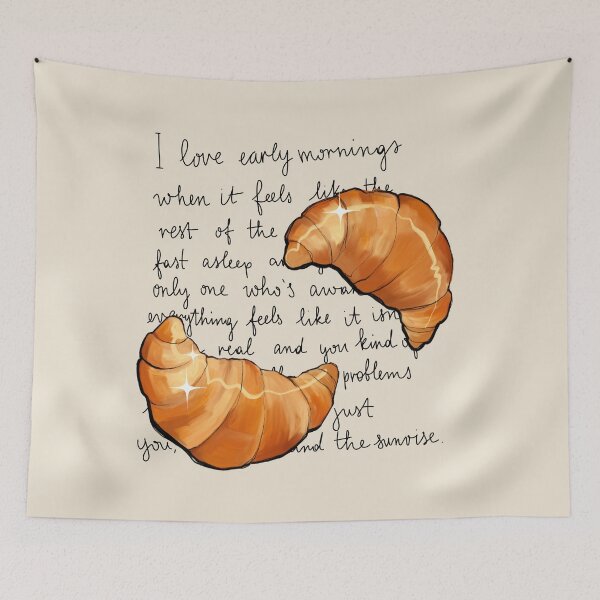 I love early mornings
when it feels like the
rest of the
fast asleep
only one who's awake
everything feels like it isn't
real and you kind of
problems
just
you, and the sunrise.